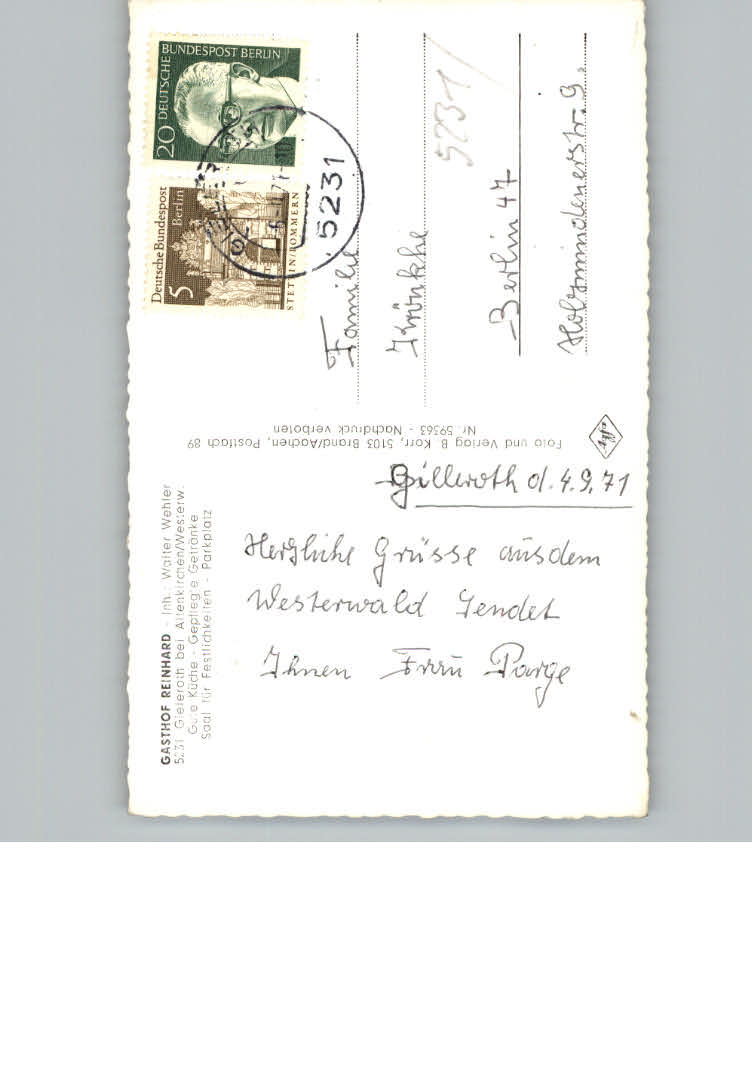 GASTHOF REINHARD - Inh.: Walter Wehler
5231 Gieleroth bei Altenkirchen/Westerw.
Gute Küche - Gepflegte Getränke
Saal für Festlichkeiten - Parkplatz
Gilleroth d. 4.9.71
Herzliche Grüsse aus dem
Westerwald Sendet
Ihnen Frau Parge
Foto und Verlag B. Korr, 5103 Brand/Aachen, Postfach 89
Nr. 59363 - Nachdruck verboten
DEUTSCHE BUNDESPOST BERLIN
20
Deutsche Bundespost
Berlin
5
STETTIN/POMMERN
5231
5231
Familie
Berlin 47
Holzmindenerstr. 9.